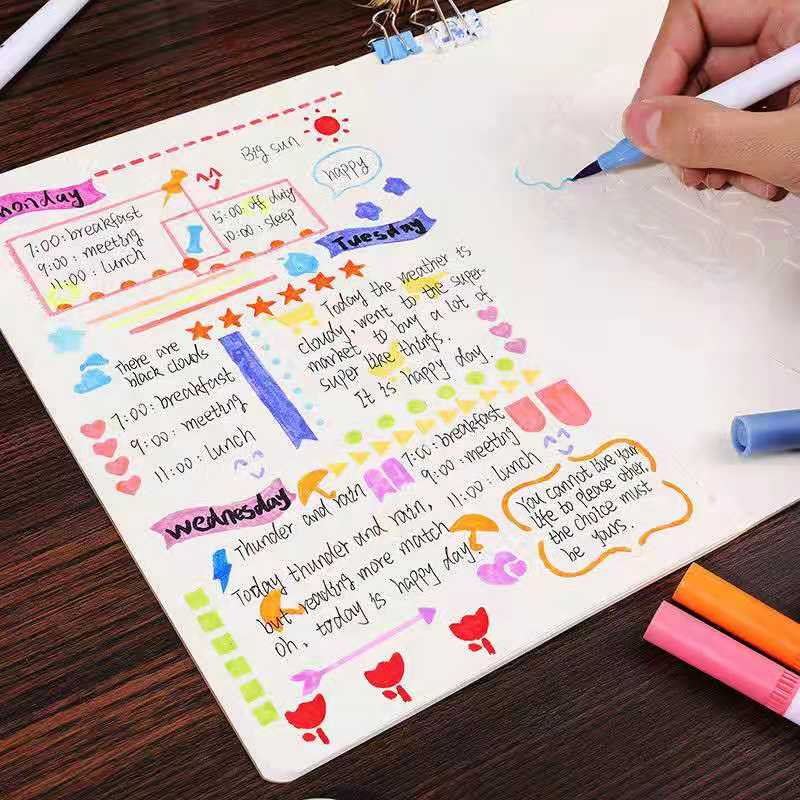 Big sun
happy
monday
7:00: breakfast
9:00: meeting
11:00: lunch
5:00 off duty
10:00: sleep
Tuesday
There are
black clouds
7:00: breakfast
9:00: meeting
11:00: lunch
Today the weather is
cloudy, went to the super-
market to buy a lot of
super like things.
It is happy day.
wednesday
Thunder and rain
7:00: breakfast
9:00: meeting
11:00: lunch
Today thunder and rain,
but reading more match
oh, today is happy day!
You cannot live your
life to please other,
the choice must
be yours.